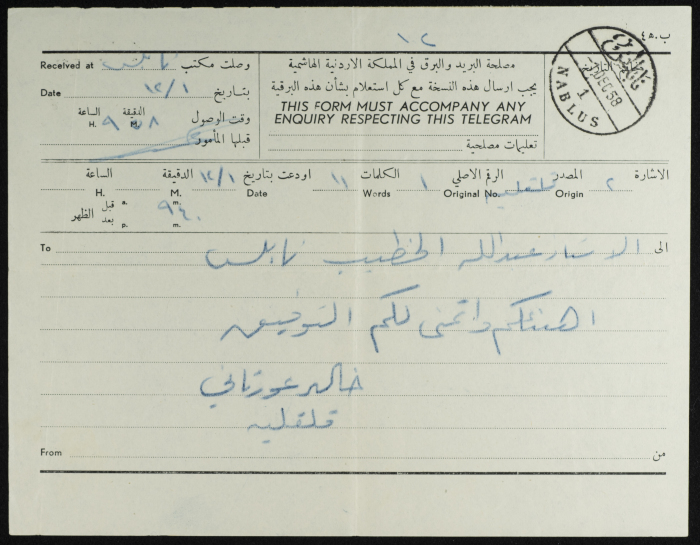 ب.ھ٤
١٢
Received at وصلت مكتب نابلس
Date بتاريخ ١٢/١
الساعة H. ٩ الدقيقة M. ٥٨ وقت الوصول
قبلها المأمور
مصلحة البريد والبرق في المملكة الاردنية الهاشمية
يجب ارسال هذه النسخة مع كل استعلام بشأن هذه البرقية
THIS FORM MUST ACCOMPANY ANY
ENQUIRY RESPECTING THIS TELEGRAM
تعليمات مصلحية
نابلس
DEC 58
1
NABLUS
الاشارة ٢ المصدر Origin قلقيلية الرقم الاصلي Original No. ١ الكلمات Words ١١ اودعت بتاريخ Date ١٢/١ الدقيقة M. الساعة H.
٩٤٠ a. m. قبل
p. m. بعد الظهر
To الى الاستاذ عبدالله الخطيب نابلس
اهنئكم واتمنى لكم التوفيق
خالد
قلقليه
From من